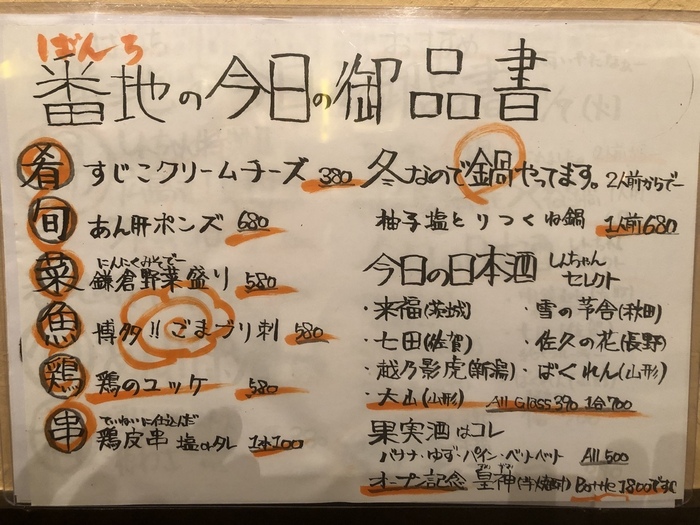 ばんち
番地の今日の御品書
肴 すじこクリームチーズ 380
旬 あん肝ポンズ 680
にんにくみそで
菜 鎌倉野菜盛り 580
魚 博多!! ごまブリ刺 580
鶏 鶏のユッケ 580
ていねいに仕込んだ
串 鶏皮串 塩orタレ 1本100
冬なので鍋やってます。2人前からでー
柚子塩とりつくね鍋 1人前680
今日の日本酒 しんちゃんセレクト
・来福(茨城) ・雪の茅舎(秋田)
・七田(佐賀) ・佐久の花(長野)
・越乃影虎(新潟) ・ばくれん(山形)
・大山(山形) All Glass390 1合700
果実酒はコレ
バナナ・ゆず・パイン・ All 500
オープン記念 皇神(芋焼酎) Bottle 1800です